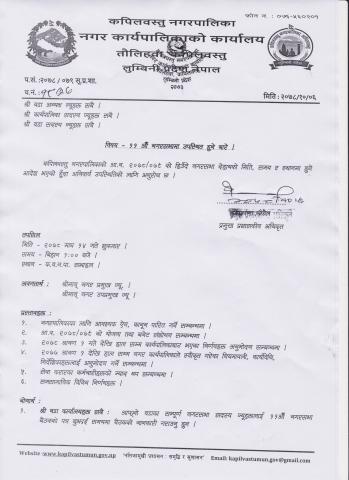 फोन नं. : ०७६-५६०२०१
कपिलवस्तु नगरपालिका
नगर कार्यपालिकाको कार्यालय
तौलिहवा, कपिलवस्तु
लुम्बिनी प्रदेश, नेपाल
प.सं. :२०७८ / ०७९ सु.प्र.शा.
च.नं. :
मिति : २०७८/१०/०६
श्री वडा अध्यक्ष ज्यूहरु सबै ।
श्री कार्यपालिका सदस्य ज्यूहरु ।
श्री वडा सदस्य ज्यूहरु सबै ।
विषय - ११ औं नगरसभामा उपस्थित हुने बारे ।
कपिलवस्तु नगरपालिकाको आ.व. २०७८/०७९ को हिउँदे नगरसभा देहायको मिति, समय र स्थानमा हुने
आदेश भएको हुँदा अनिवार्य उपस्थितिको लागि अनुरोध छ ।
प्रमुख प्रशासकीय अधिकृत
तपसिल
मिति - २०७८ माघ १४ गते शुक्रबार ।
समय - बिहान ९:०० बजे ।
स्थान - क.व.न.पा. सभाहल ।
अध्यक्षता : श्रीमान् नगर प्रमुख ज्यू ।
श्रीमान् नगर उपप्रमुख ज्यू ।
प्रस्तावहरु :
१. नगरपालिकाका लागि आवश्यक ऐन, कानून पारित गर्ने सम्बन्धमा ।
२. आ.व. २०७८/०७९ को योजना तथा बजेट संशोधन सम्बन्धमा ।
३. २०७८ श्रावण १ गते देखि हाल सम्म कार्यपालिकाबाट भएका निर्णयहरु अनुमोदन सम्बन्धमा ।
४. २०७८ श्रावण १ देखि हाल सम्म नगर कार्यपालिकाले स्वीकृत गरेका नियमावली, कार्यविधि,
निर्देशिकाहरुलाई अनुमोदन गर्ने सम्बन्धमा ।
५. सेवा करारका कर्मचारीहरुको म्याद थप सम्बन्धमा ।
६. समसामयिक विविध निर्णयहरु ।
बोधार्थ :
१. श्री वडा कार्यालयहरु सबै : आफ्नो वडाका सम्पूर्ण नगरसभा सदस्य ज्यूहरुलाई ११औं नगरसभा
बैठकको पत्र बुझाई समयमा बैठकको जानकारी गराउनु हुन ।
Website :www.kapilvastumun.gov.np Email: kapilvastumun.gov@gmail.com